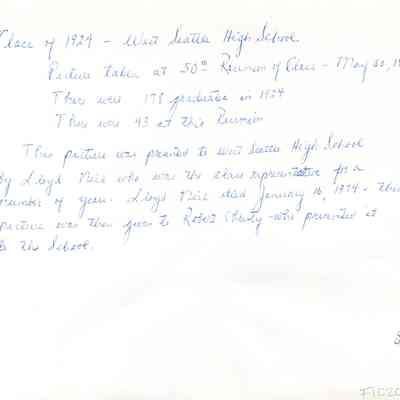 Class of 1924 - West Seattle High School
Picture taken at 50th Reunion of Class - May 20, 19
There were 178 graduates in 1924
There were 43 at this Reunion
This picture was presented to West Seattle High School
by Lloyd who was the class representative for a
number of years. Lloyd died January 16, 1974 - This
picture was then given to Robert who presented it
to the School.
S